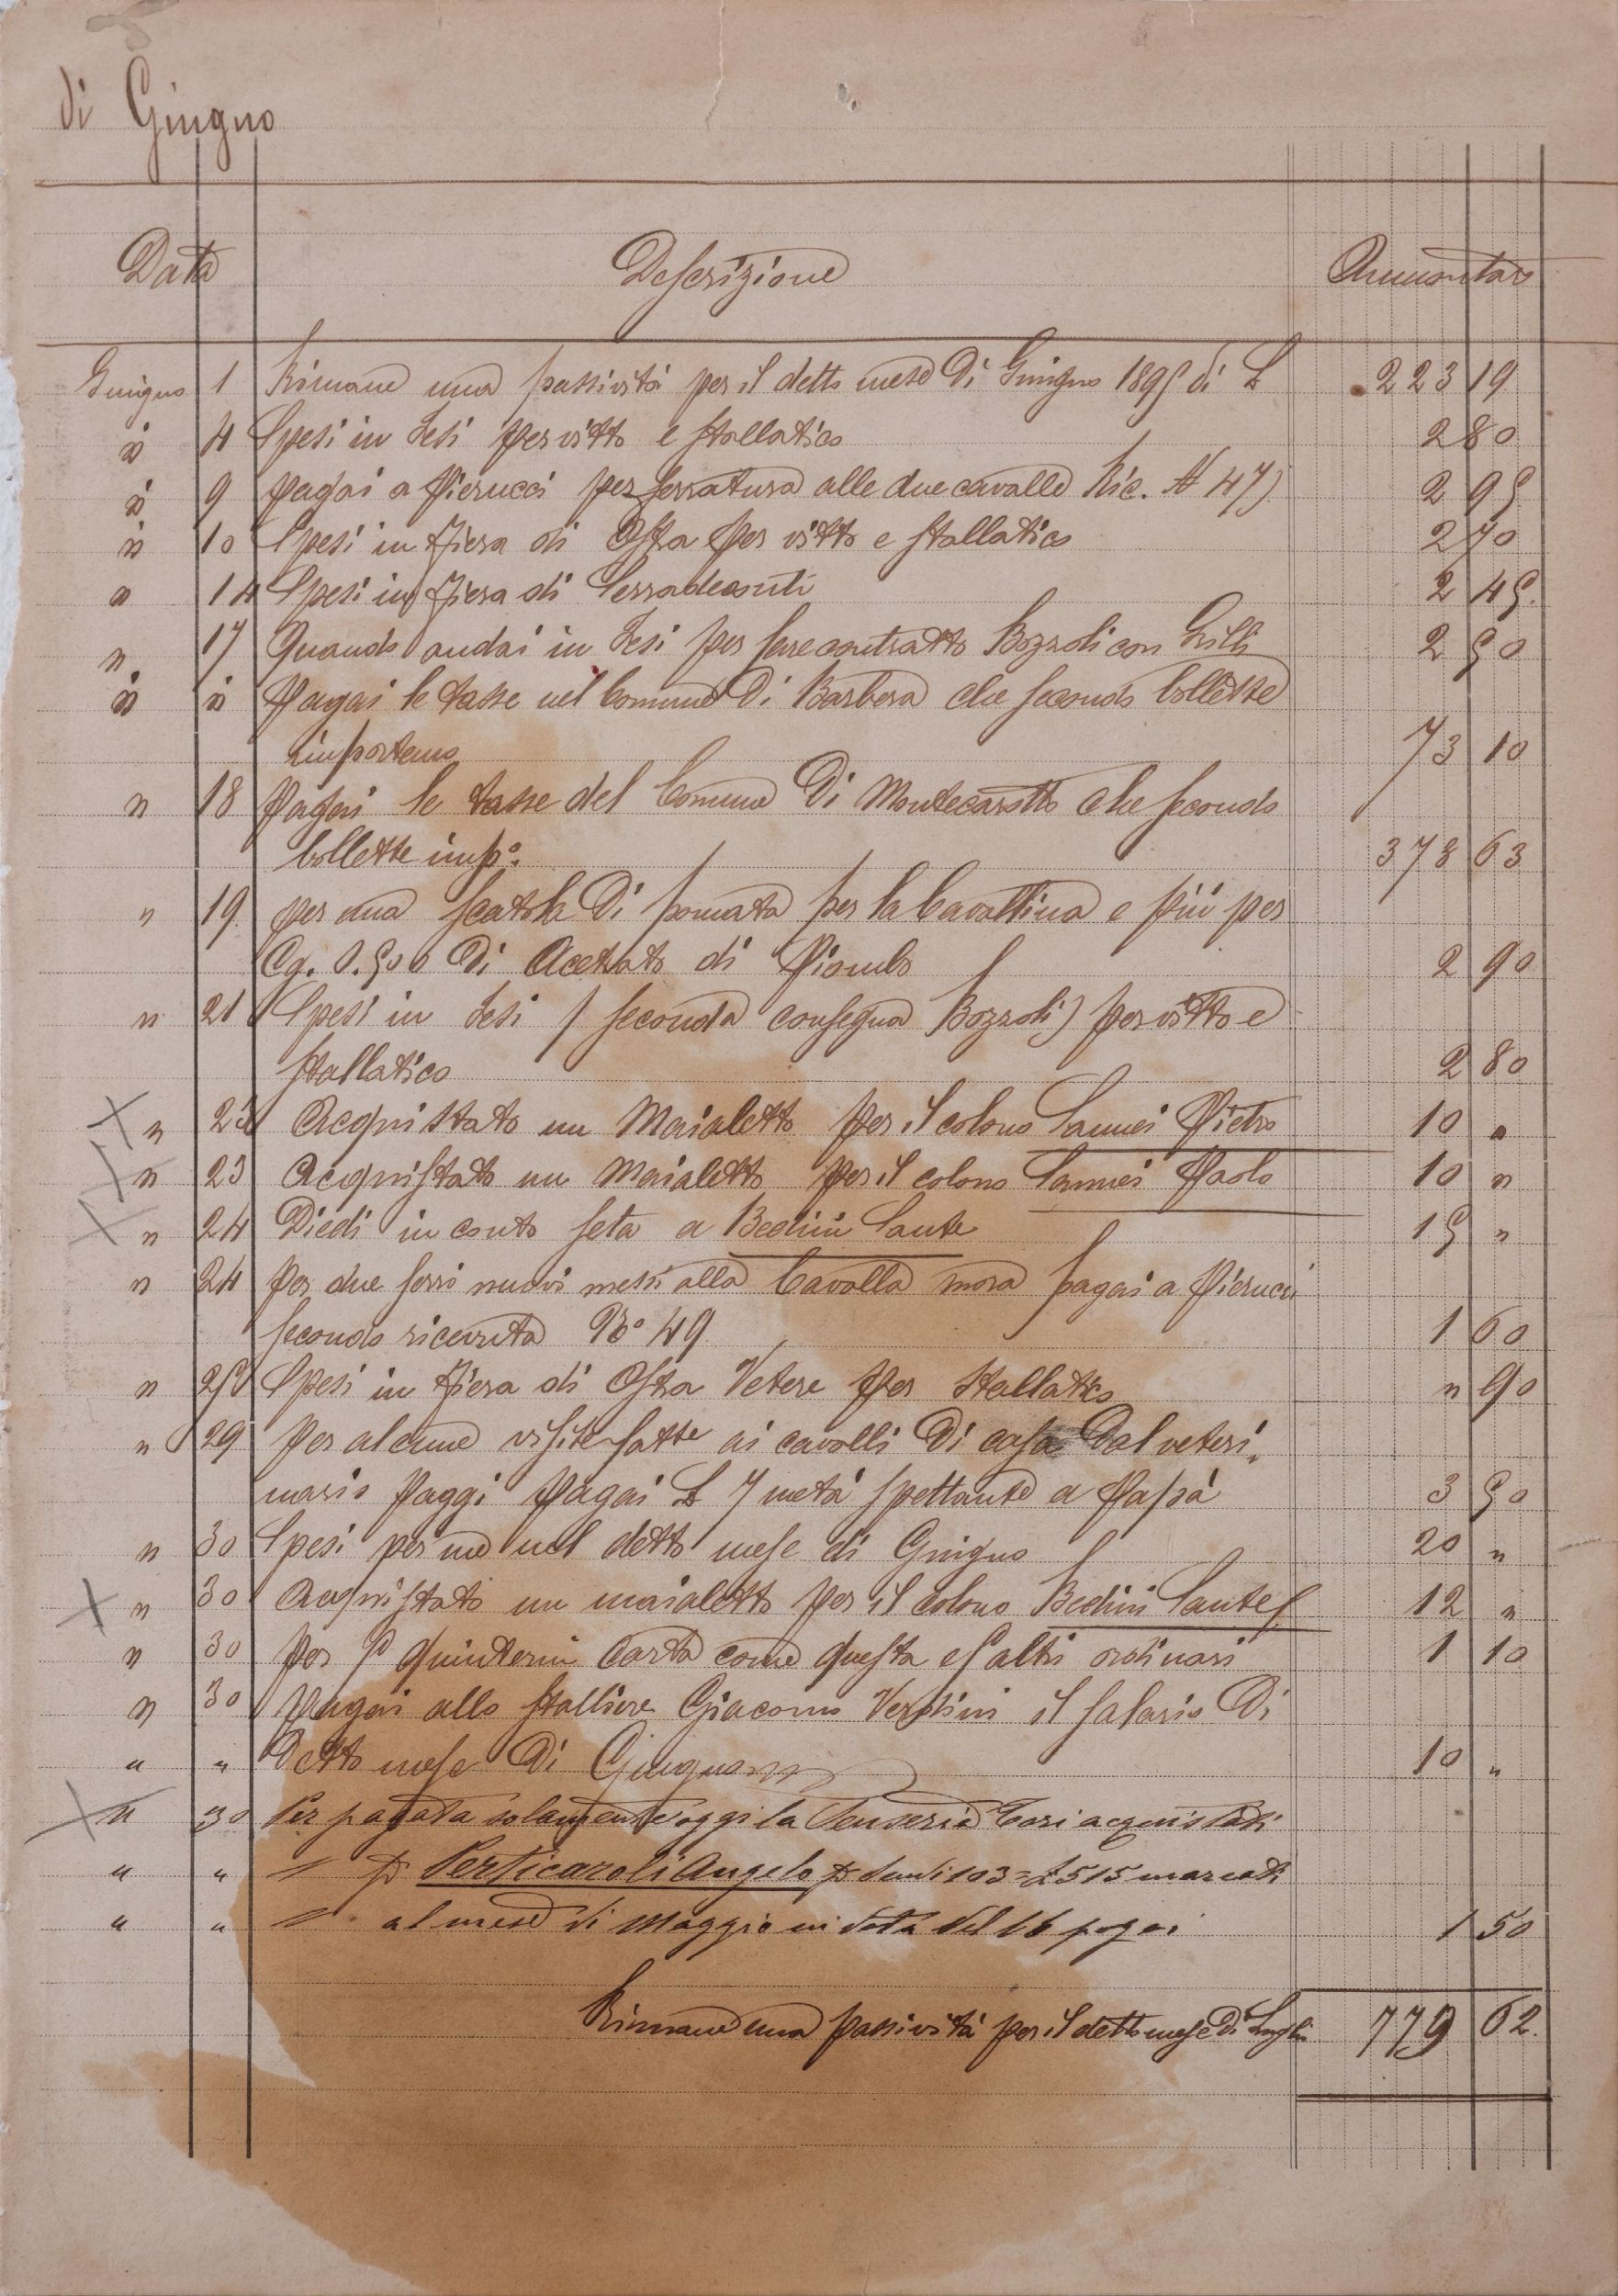 di Giugno
Data Descrizione Ammontare
Giugno 1 Rimane una passività per il detto mese di Giugno 1895 di L 223 19
" 4 Spesi in Jesi per vitto e stallatico 2 80
" 9 pagai a Pierucci per ferratura alle due cavalle Ric. N 47) 2 95
" 10 Spesi in Fiera di Ostra per vitto e stallatico 2 70
" 14 Spesi in Fiera di Serradeconti 2 45
" 17 Quando andai in Jesi per fare contratto Bozzoli con 2 50
" " Pagai le tasse nel Comune di Barbara che secondo bollette
importano 73 10
" 18 Pagai le tasse del Comune di Montecarotto che secondo
bollette imp°. 378 63
" 19 per una scatola di pomata per la Cavallina e più per
Cg. 0.500 di Acetato di Piombo 2 90
" 21 Spesi in Jesi (seconda consegna Bozzoli) per vitto e
stallatico 2 80
" 23 Acquistato un Maialetto per il colono Pietro 10 "
" 23 Acquistato un Maialetto per il colono Paolo 10 "
" 24 Diedi in conto seta a Bedini Sante 15 "
" 24 Per due ferri nuovi messi alla Cavalla mora pagai a Pierucci
secondo ricevuta N° 49 1 60
" 25 Spesi in Fiera di Ostra Vetere per stallatico " 90
" 29 Per alcune visite fatte ai cavalli di casa dal veteri-
nario Paggi pagai L 7 metà spettante a Papà 3 50
" 30 Spesi per me nel detto mese di Giugno 20 "
" 30 Acquistato un maialetto per il colono Bedini Sante 12 "
" 30 per 5 quinterni Carta come questa e 5 altri ordinari 1 10
" 30 pagai allo stalliere Giacomo Verdini il salario di
" " Detto mese di Giugno 10 "
" 30 Per pagata solamente oggi la Senseria Tori acquistati
" " " p Perticaroli Angelo p Scudi 103 = £ 515 marcati
" " " al mese di Maggio in data del 16 pagai 1 50
Rimane una passività per il detto mese di Luglio 779 62